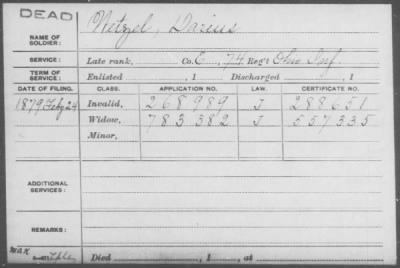 DEAD
NAME OF SOLDIER: Netzel, Darius
SERVICE: Late rank, Co. E, 74 Reg't Ohio Inf.
TERM OF SERVICE: Enlisted , 1 Discharged , 1
DATE OF FILING. CLASS. APPLICATION NO. LAW. CERTIFICATE NO.
1879 Feby 24 Invalid, 268989 J 288651
Widow, 783382 J 557335
Minor,
ADDITIONAL SERVICES:
REMARKS:
Died , 1 , at